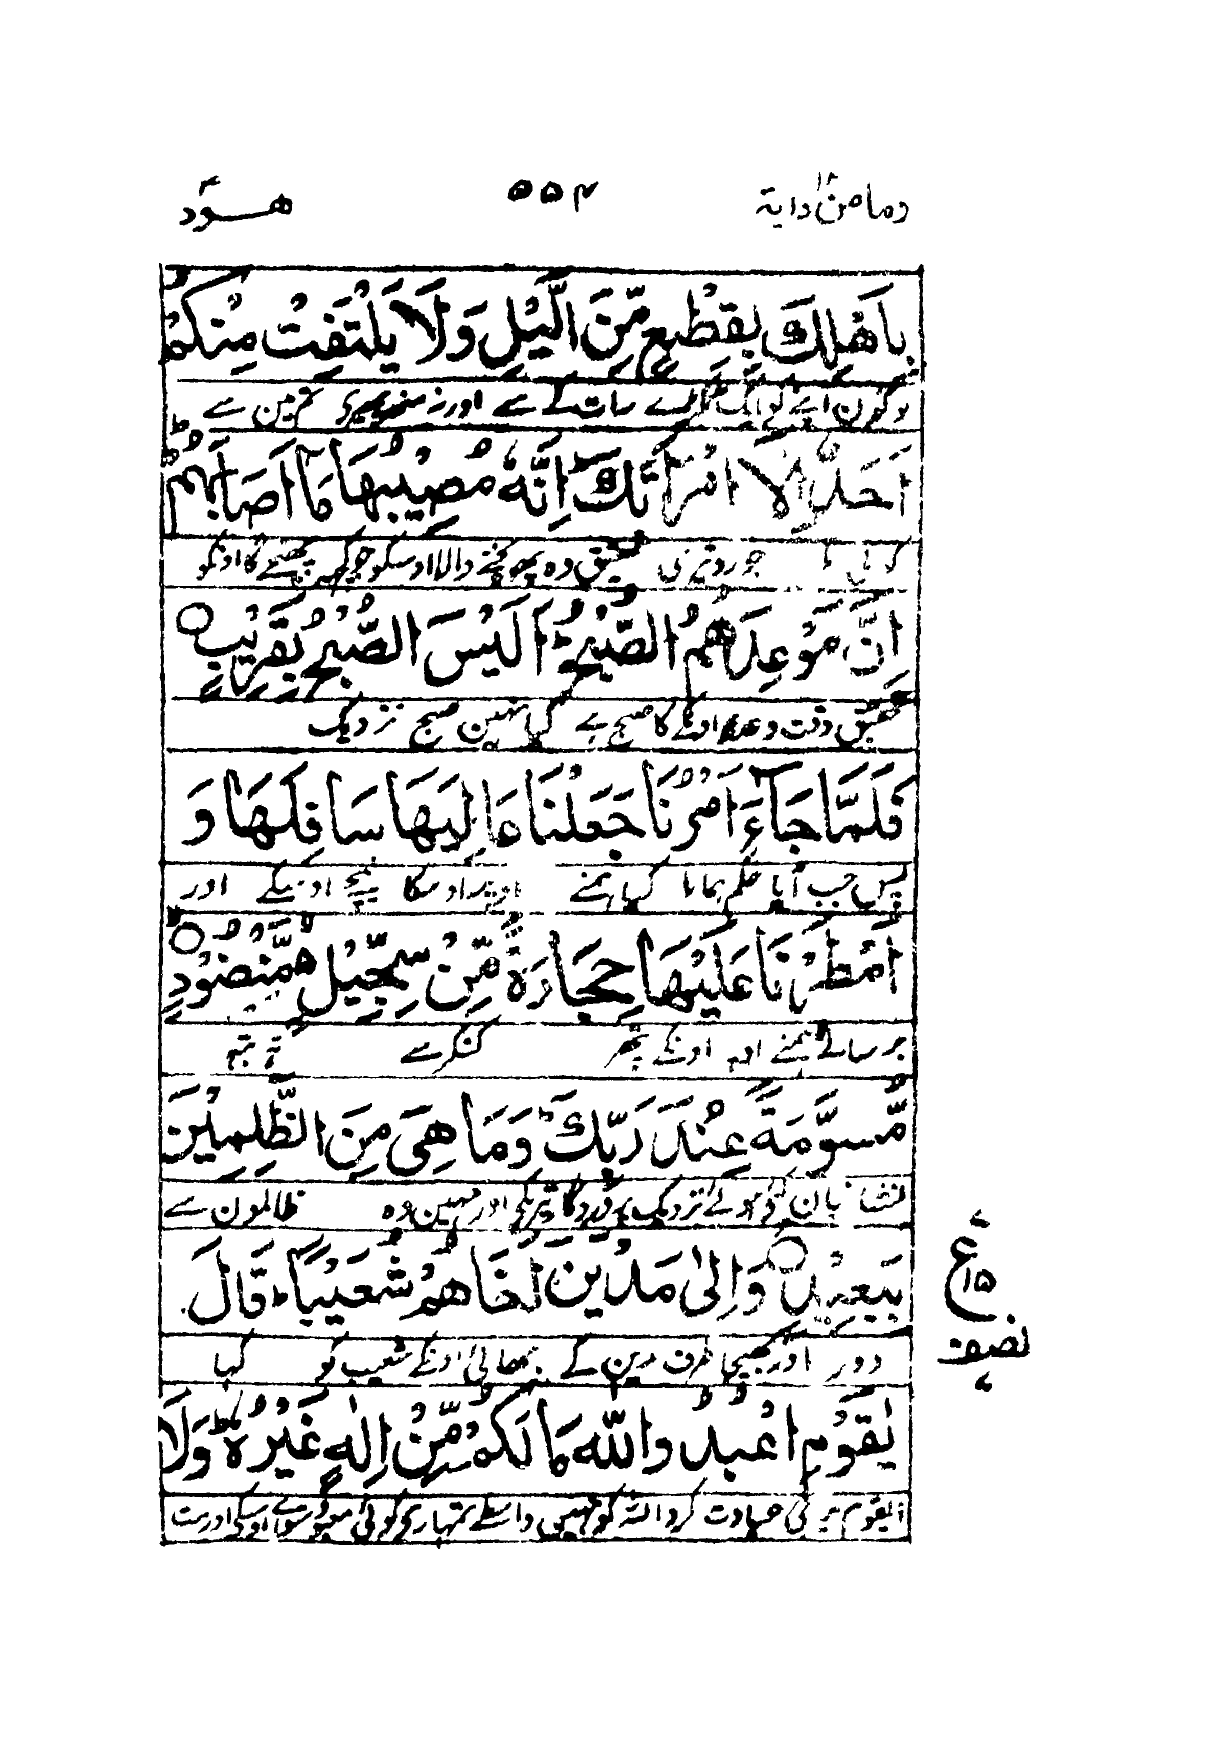 وما من دابة ۵۵۴ هود
بِاَهْلِكَ بِقِطْعٍ مِّنَ الَّيْلِ وَلَا يَلْتَفِتْ مِنْكُمْ
لوگون اپنے کو ایک ٹکڑے رات کے سے اور نہ منہ پھیرے تم مین سے
اَحَدٌ اِلَّا امْرَاَتَكَ ؕ اِنَّهٗ مُصِيْبُهَا مَاۤ اَصَابَهُمْ ؕ
کوئی جورو تیری تحقیق وہ پہونچنے والا اوسکو جو کچھ پہنچے گا اونکو
اِنَّ مَوْعِدَهُمُ الصُّبْحُ ؕ اَلَيْسَ الصُّبْحُ بِقَرِيْبٍ ○
تحقیق وقت وعدہ اونکے کا صبح ہے کیا نہین صبح نزدیک
فَلَمَّا جَآءَ اَمْرُنَا جَعَلْنَا عَالِيَهَا سَافِلَهَا وَ
پس جب آیا حکم ہمارا کیا ہمنے اوپر اوسکا نیچے اونکے اور
اَمْطَرْنَا عَلَيْهَا حِجَارَةً مِّنْ سِجِّيْلٍ ۙ مَّنْضُوْدٍ ○
برسائے ہمنے اوپر اونکے پتھر کنکر سے تہ بتہ
مُّسَوَّمَةً عِنْدَ رَبِّكَ ؕ وَمَا هِىَ مِنَ الظّٰلِمِيْنَ
نشان کئے ہوئے نزدیک پروردگار تیرے کے اور نہین وہ ظالمون سے
بِبَعِيْدٍ ○ وَاِلٰى مَدْيَنَ اَخَاهُمْ شُعَيْبًا ؕ قَالَ
ع ۱۵
دور اور بھیجا طرف مدین کے بھائی اونکے شعیب کو کہا
نصف
يٰقَوْمِ اعْبُدُوا اللّٰهَ مَا لَكُمْ مِّنْ اِلٰهٍ غَيْرُهٗ ؕ وَلَا
ایقوم میری عبادت کرو اللہ کو نہین واسطے تمہارے کوئی معبود سوائے اوسکے اور مت